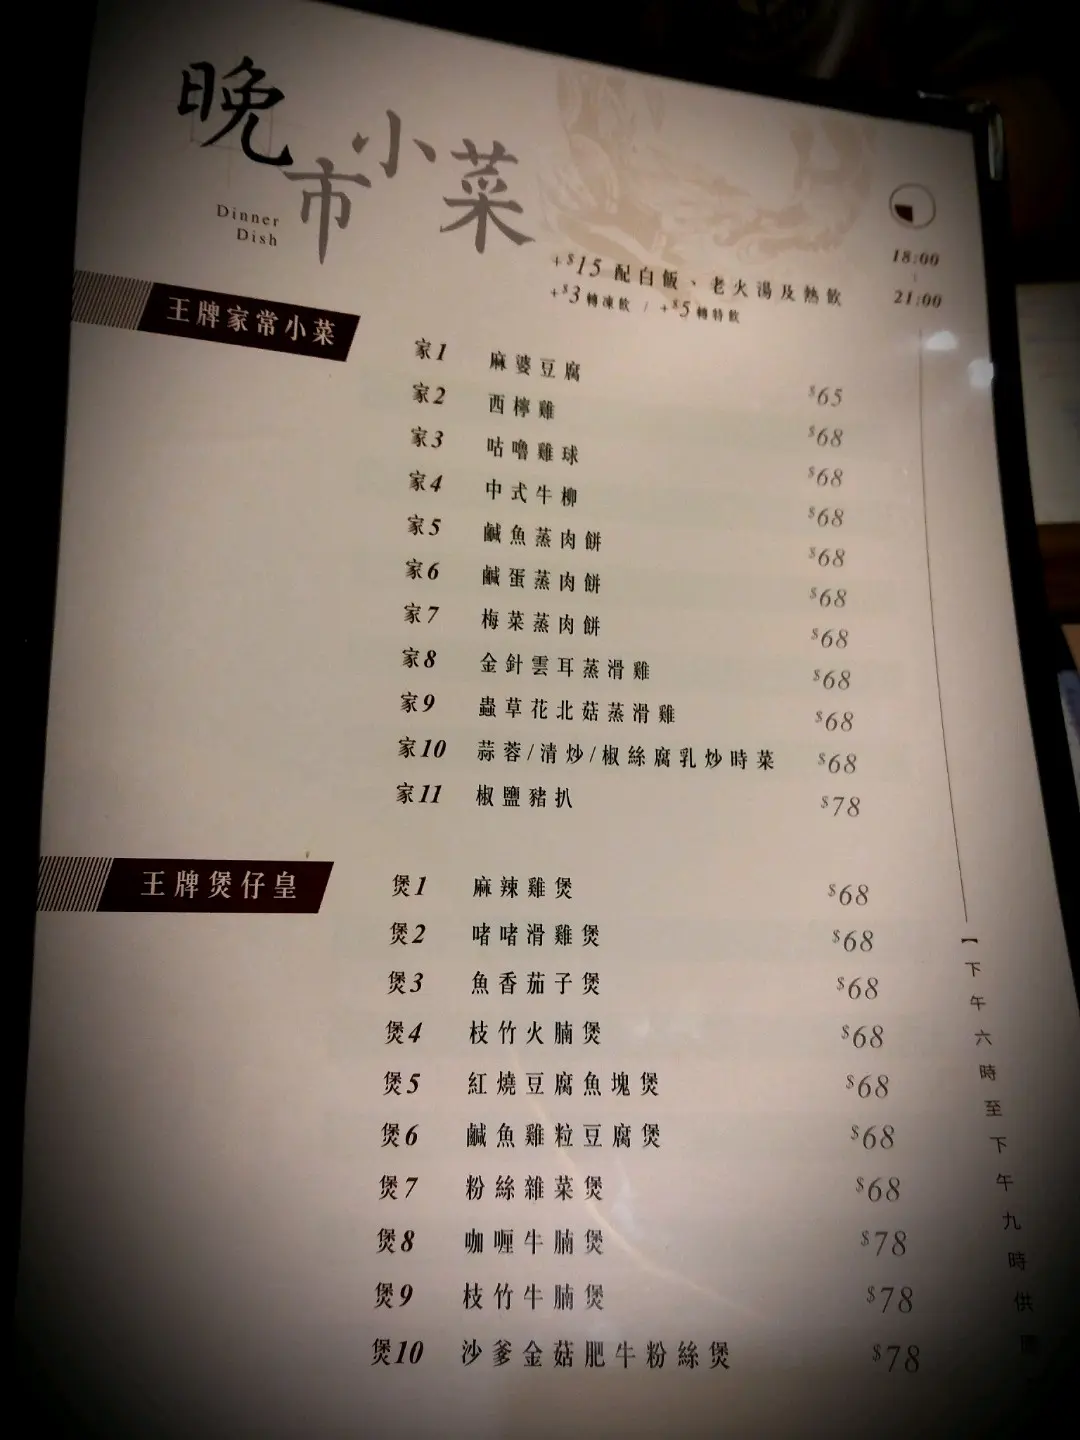 晚市小菜
Dinner
Dish
+$15 配白飯、老火湯及熱飲
+$3 轉凍飲 / +$5 轉特飲
18:00
21:00
王牌家常小菜
家1 麻婆豆腐 $65
家2 西檸雞 $68
家3 咕嚕雞球 $68
家4 中式牛柳 $68
家5 鹹魚蒸肉餅 $68
家6 鹹蛋蒸肉餅 $68
家7 梅菜蒸肉餅 $68
家8 金針雲耳蒸滑雞 $68
家9 蟲草花北菇蒸滑雞 $68
家10 蒜蓉/清炒/椒絲腐乳炒時菜 $68
家11 椒鹽豬扒 $78
王牌煲仔皇
煲1 麻辣雞煲 $68
煲2 啫啫滑雞煲 $68
煲3 魚香茄子煲 $68
煲4 枝竹火腩煲 $68
煲5 紅燒豆腐魚塊煲 $68
煲6 鹹魚雞粒豆腐煲 $68
煲7 粉絲雜菜煲 $68
煲8 咖喱牛腩煲 $78
煲9 枝竹牛腩煲 $78
煲10 沙爹金菇肥牛粉絲煲 $78
【下午六時至下午九時供應